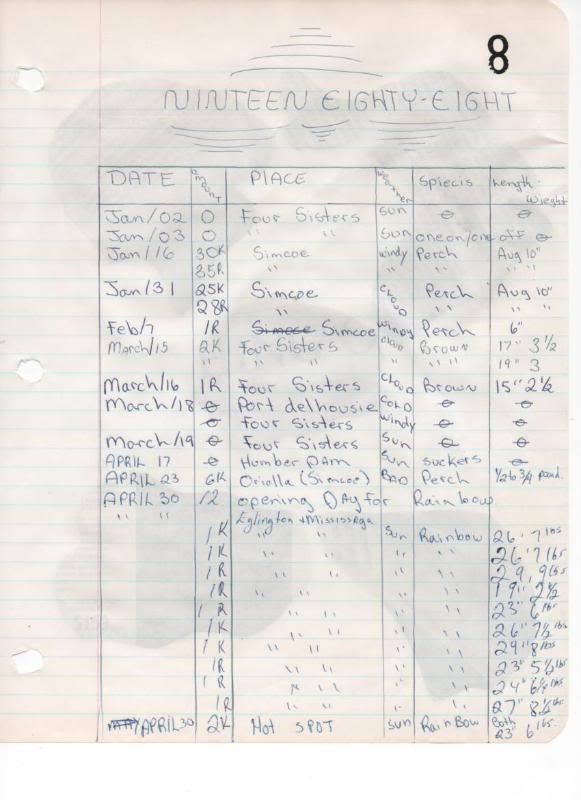 8
NINTEEN EIGHTY-EIGHT
DATE AMOUNT PLACE Weather SPIECIS Length Wieght
Jan/02 0 Four Sisters SUN 0 0
Jan/03 0 " " SUN one on/one off 0
Jan/16 30K Simcoe windy Perch Aug 10"
35R " " " " " "
Jan/31 25K Simcoe CLOUD Perch Aug 10"
28R
Feb/7 1R Simcoe Simcoe WINDY Perch 6"
March/15 2K Four Sisters cloud Brown 17" 3 1/2
" " " " " " 19" 3
March/16 1R Four Sisters CLOUD Brown 15" 2 1/2
March/18 0 Port delhousie COLD 0 0
0 Four Sisters windy 0 0
March/19 0 Four Sisters SUN 0 0
APRIL 17 0 Humber DAM SUN suckers 0
APRIL 23 6K Oriolla (Simcoe) BAD Perch 1/2 to 3/4 pound.
APRIL 30 12 opening DAy For Rainbow
" " Eglington + Mississaga
1K " " SUN Rainbow 26" 7 lbs
1K " " " " " 26" 7 lbs
1R " " " " " 29, 9 lbs
1R " " " " " 19" 2 1/2
1R " " " " " 23" 6 lbs
1K " " " " " 26" 7 1/2
1K " " " " " 29" 8 lbs
1R " " " " " 23" 5 1/2 lbs
1R " " " " " 24" lbs
1R " " " " " 27" lbs
APRIL 30 2K Hot SPOT SUN RainBow Both 23" 6 lbs.